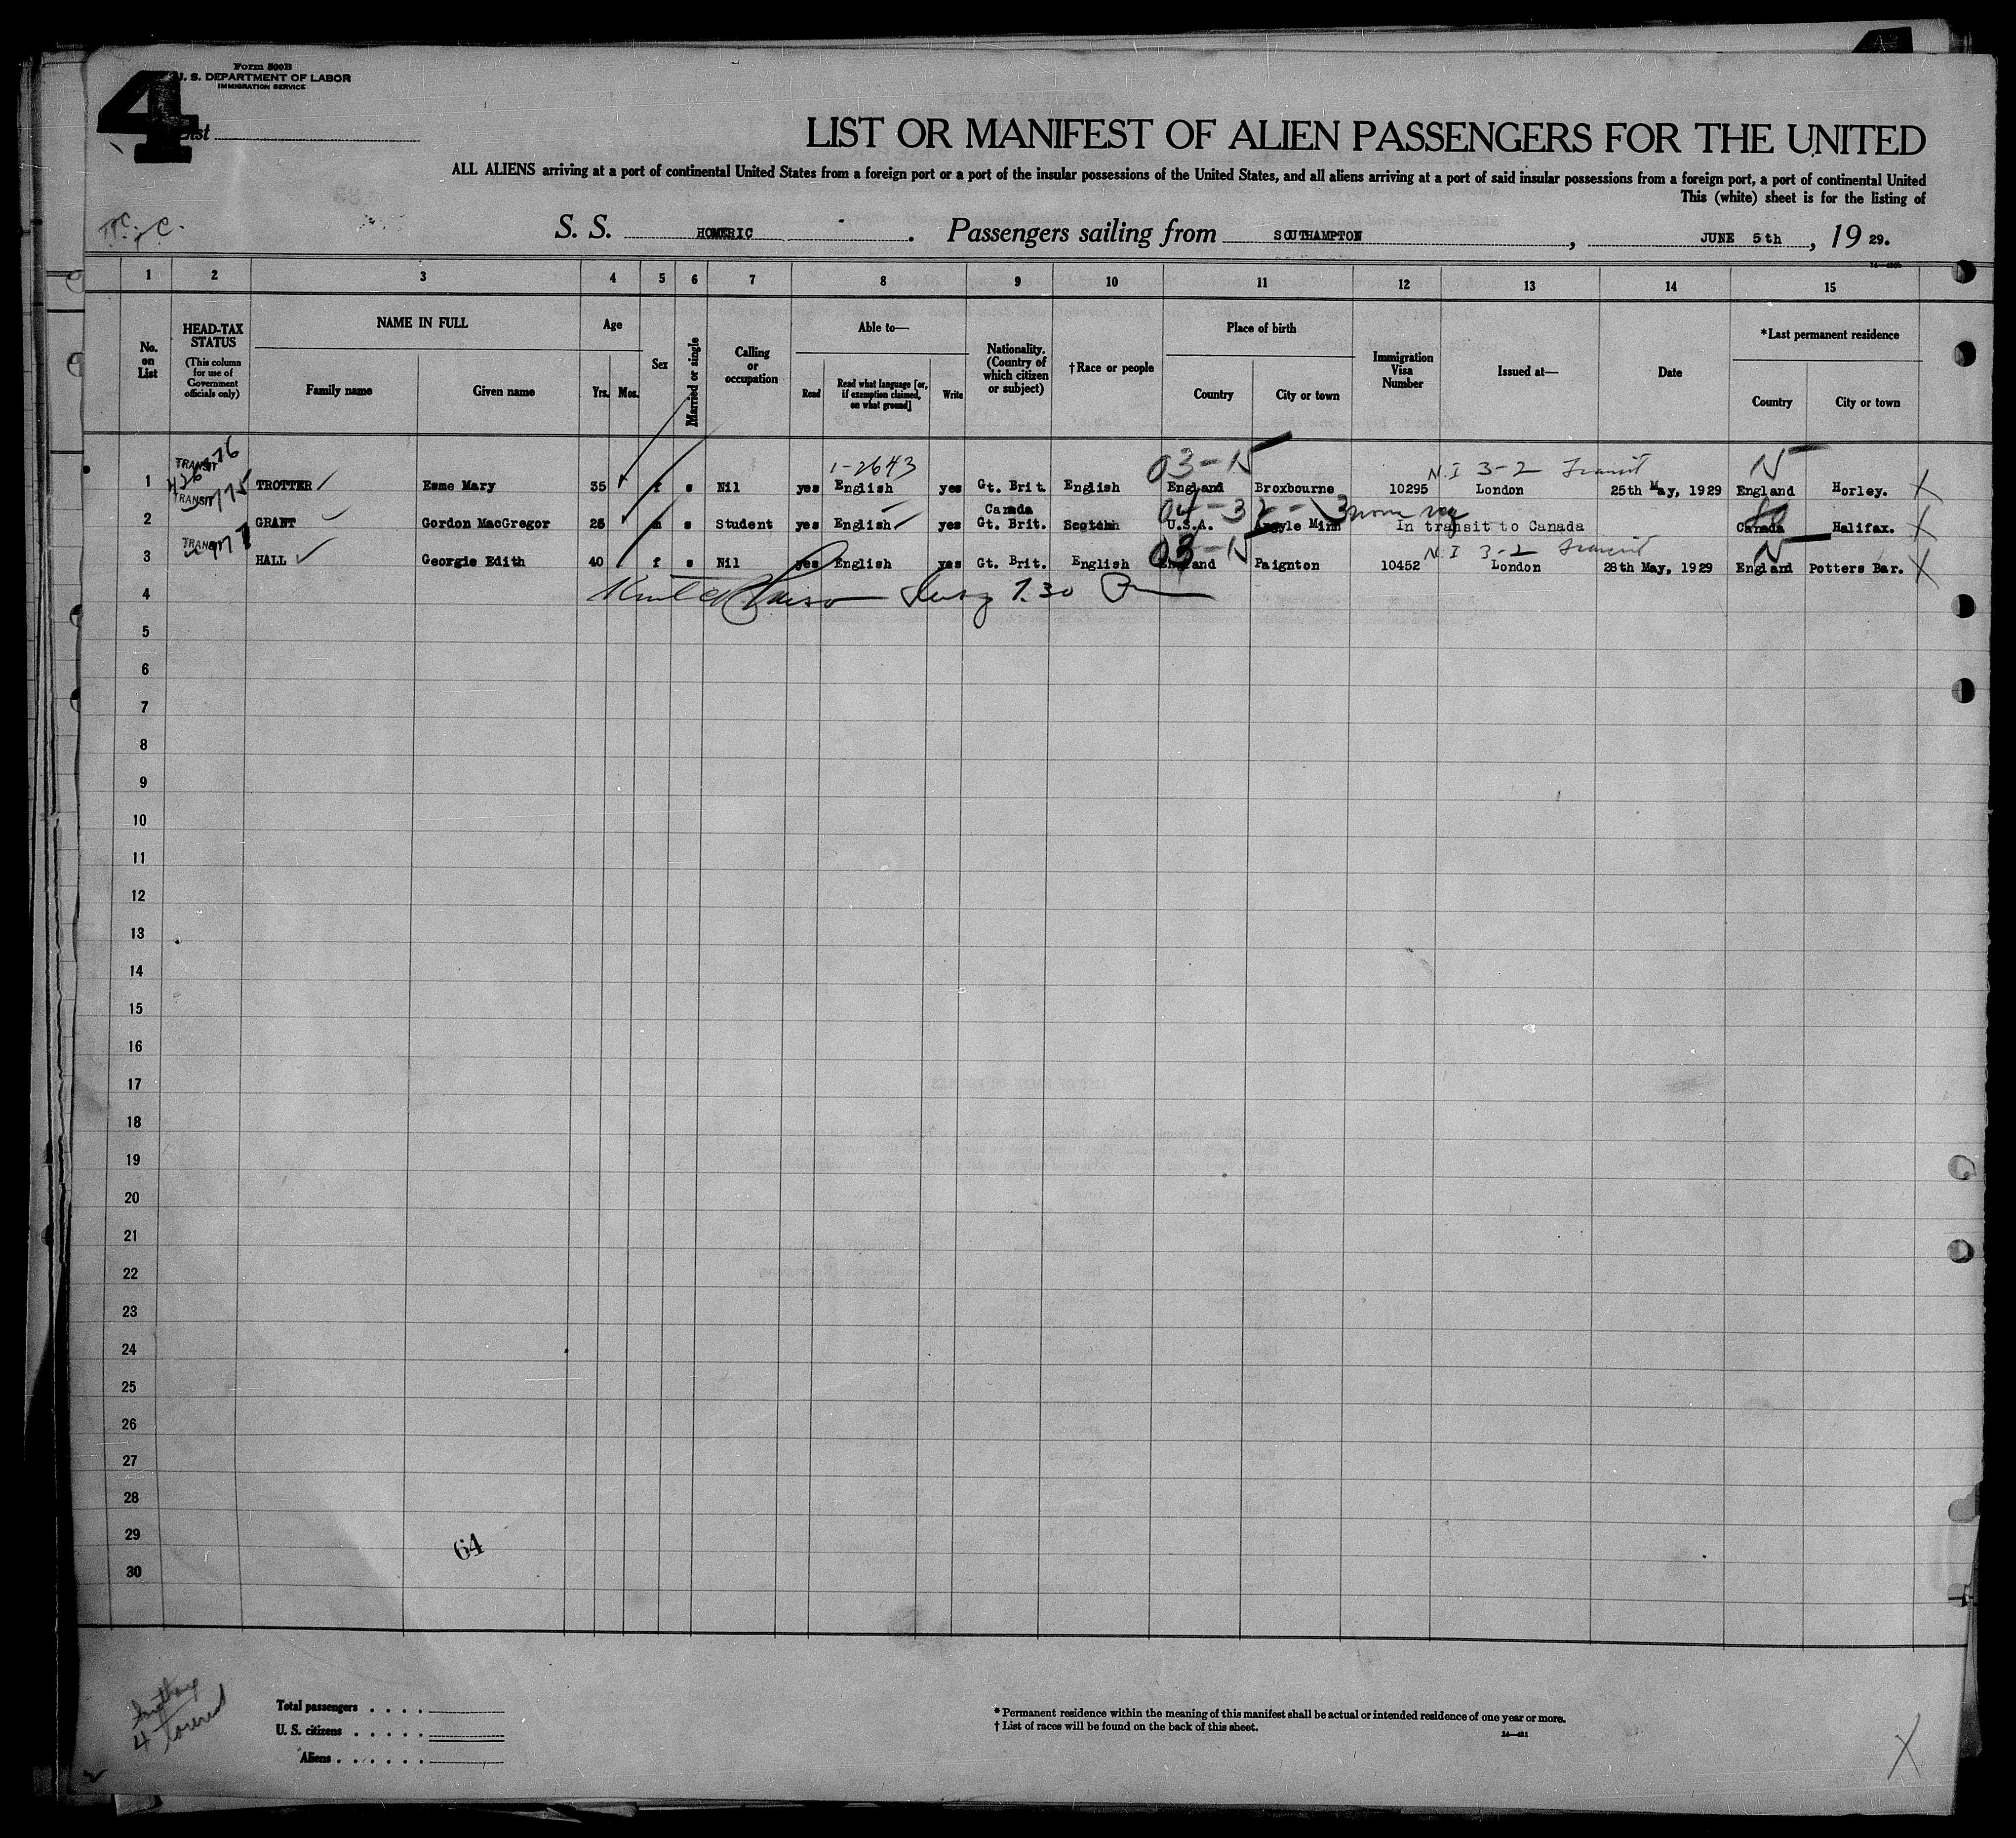 4
Form 500B
U. S. DEPARTMENT OF LABOR
IMMIGRATION SERVICE
List
LIST OR MANIFEST OF ALIEN PASSENGERS FOR THE UNITED
ALL ALIENS arriving at a port of continental United States from a foreign port or a port of the insular possessions of the United States, and all aliens arriving at a port of said insular possessions from a foreign port, a port of continental United
This (white) sheet is for the listing of
S. S. HOMERIC. Passengers sailing from SOUTHAMPTON, JUNE 5th, 19 29.
1 2 3 4 5 6 7 8 9 10 11 12 13 14 15
No. on List
HEAD-TAX STATUS
(This column for use of Government officials only)
NAME IN FULL
Family name Given name
Age
Yrs. Mos.
Sex
Married or single
Calling or occupation
Able to—
Read Read what language [or, if exemption claimed, on what ground] Write
Nationality. (Country of which citizen or subject)
†Race or people
Place of birth
Country City or town
Immigration Visa Number
Issued at—
Date
*Last permanent residence
Country City or town
TRANSIT 1-2643 03-15 N.I 3-2 Transit 15
1 TROTTER Esme Mary 35 f s Nil yes English yes Gt. Brit. English England Broxbourne 10295 London 25th May, 1929 England Horley. X
TRANSIT Canada 04-3
2 GRANT Gordon MacGregor 25 m s Student yes English yes Gt. Brit. Scotch U.S.A. Argyle Minn In transit to Canada Canada Halifax. X
TRANSIT 03-15 N.I 3-2 Transit 15
3 HALL Georgie Edith 40 f s Nil yes English yes Gt. Brit. English England Paignton 10452 London 28th May, 1929 England Potters Bar. X
4
5
6
7
8
9
10
11
12
13
14
15
16
17
18
19
20
21
22
23
24
25
26
27
28
29
30
64
Total passengers . . . .
U. S. citizens . . . . .
Aliens . . . . . .
* Permanent residence within the meaning of this manifest shall be actual or intended residence of one year or more.
† List of races will be found on the back of this sheet.
14—421
X